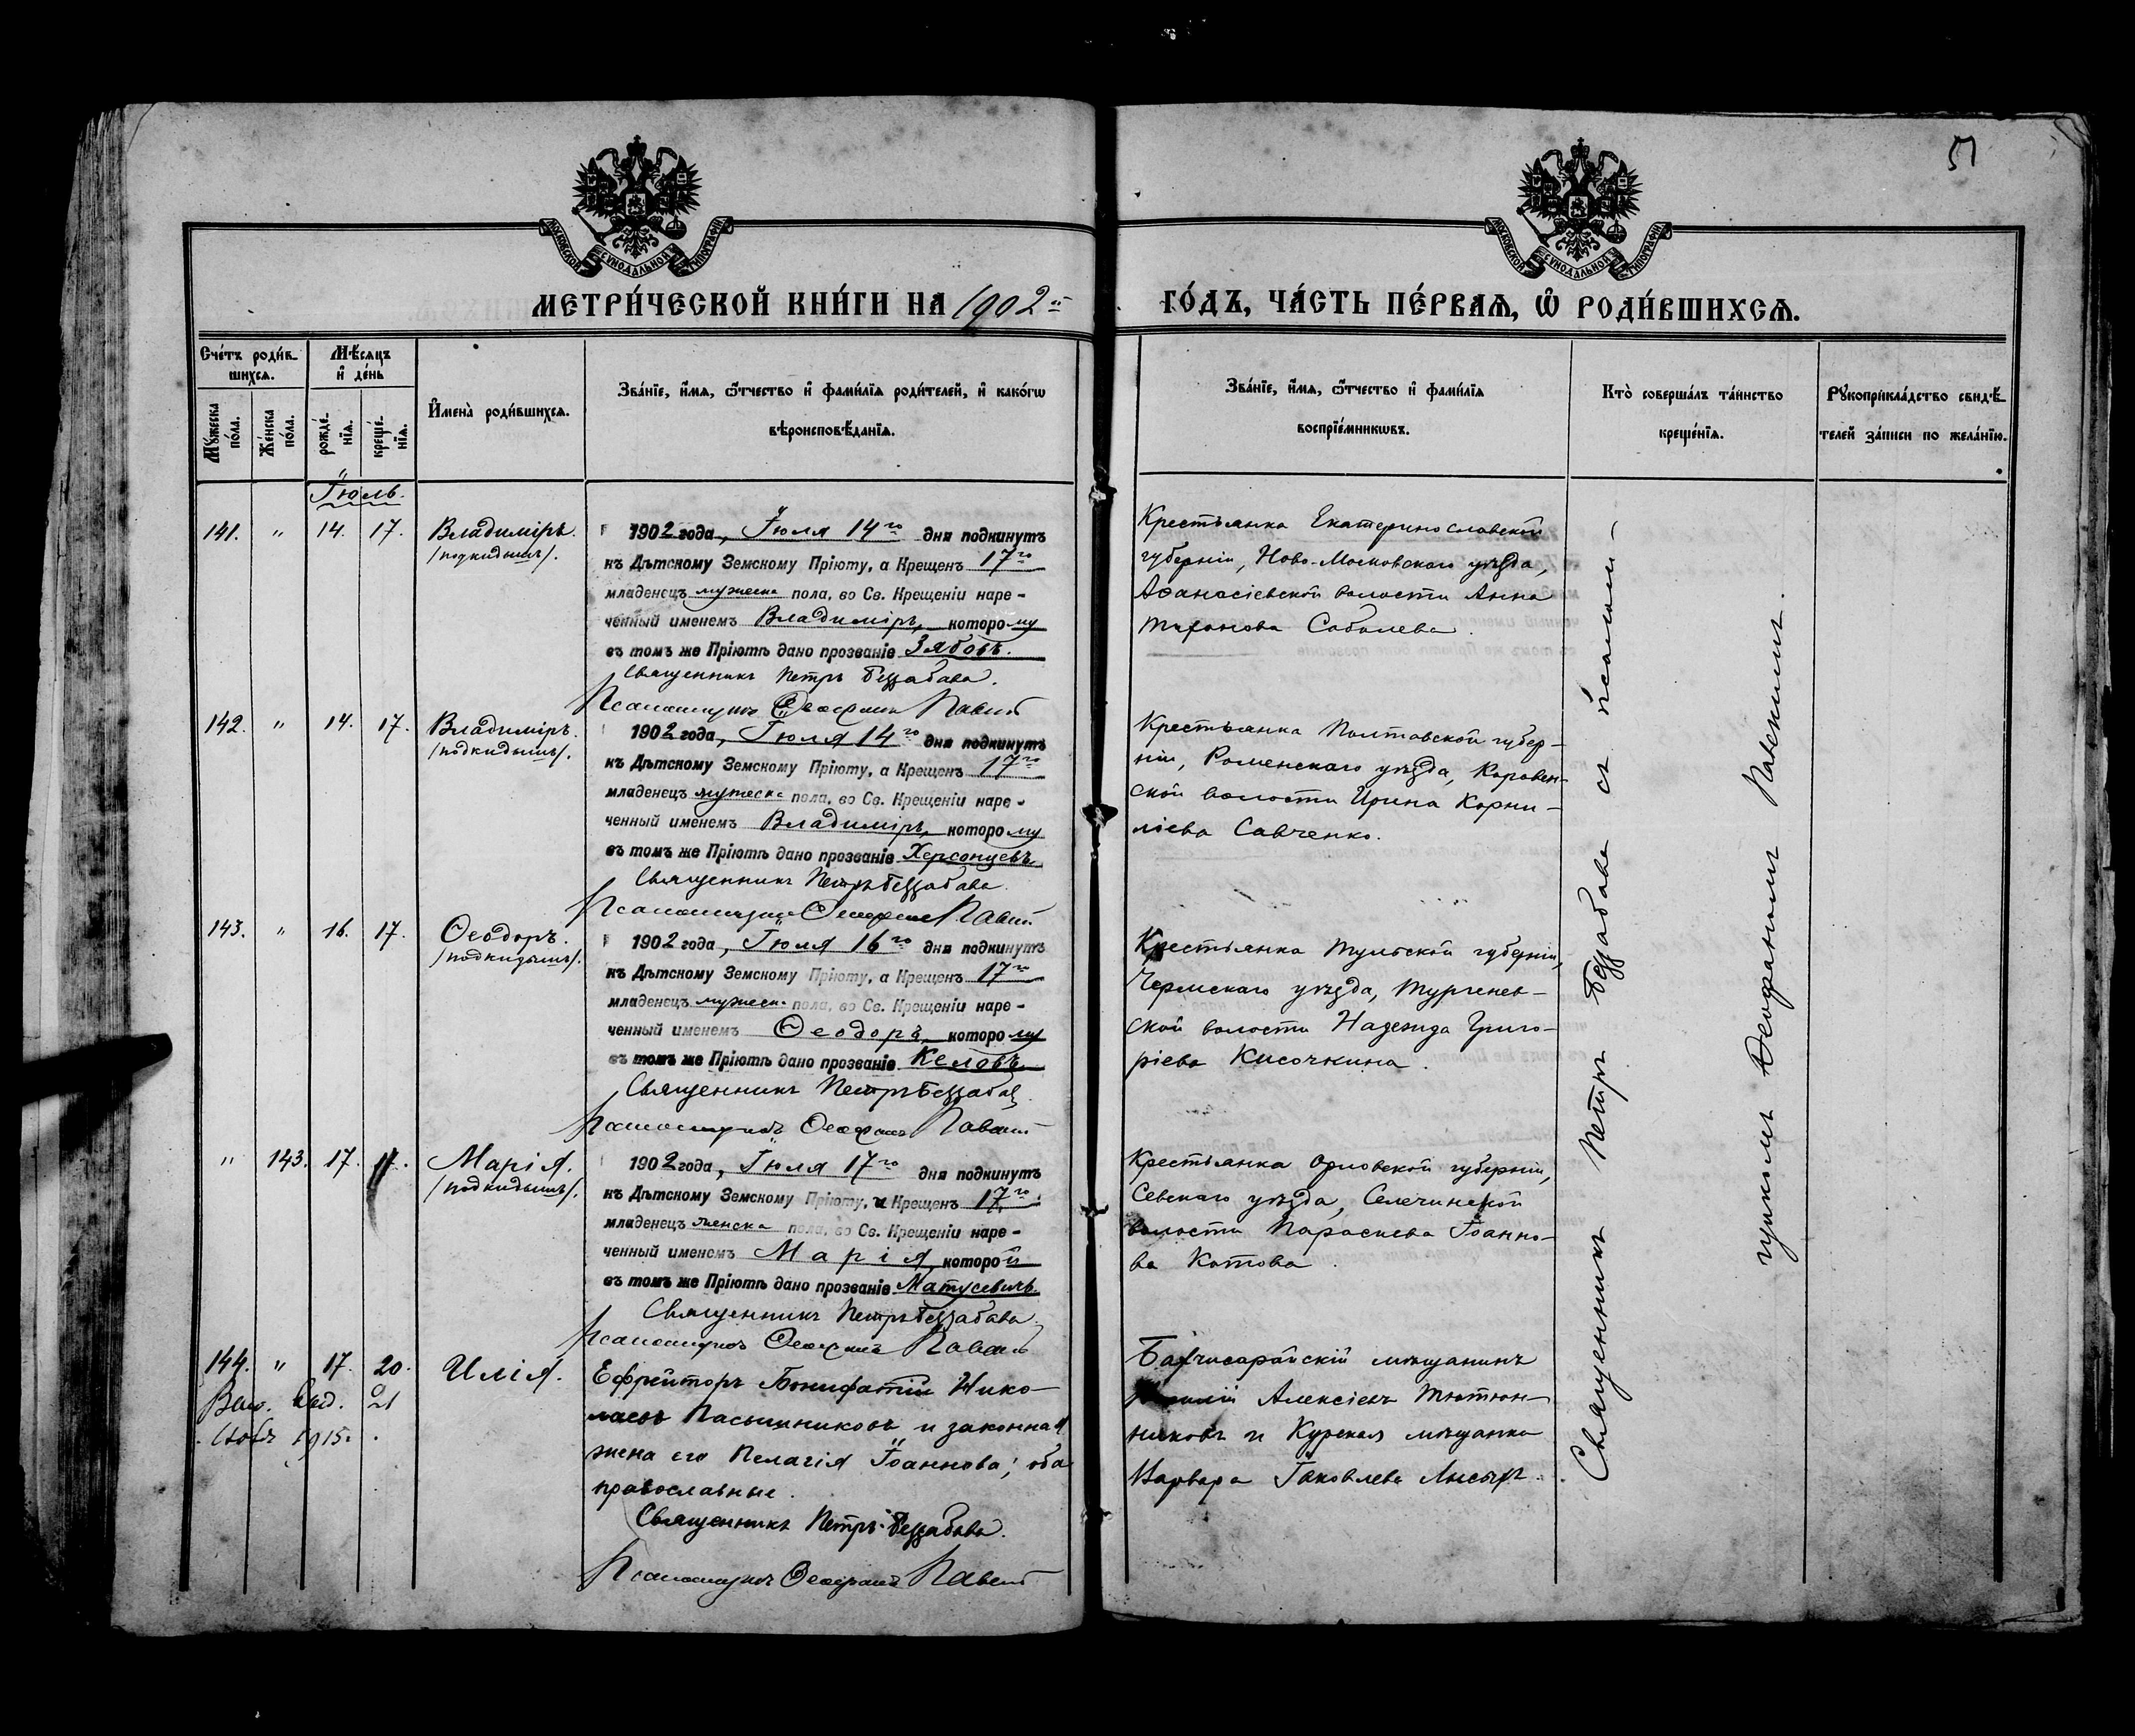 51
МОСКОВСКОЙ СУНОДАЛЬНОЙ ТИПОГРАФІИ
МОСКОВСКОЙ СУНОДАЛЬНОЙ ТИПОГРАФІИ
МЕТРИ́ЧЕСКОЙ КНИ́ГИ НА 1902й
ГО́ДЪ, ЧА́СТЬ ПЕ́РВАѦ, Ѡ РОДИ́ВШИХСѦ.
Сче́тъ роди́в-
шихсѧ.
Мѣ́сѧцъ
и де́нь
Мꙋ́жеска по́ла.
Же́нска по́ла.
рожде́-
нїѧ.
креще́-
нїѧ.
И́мена̀ роди́вшихсѧ.
Зва́нїе, и́мѧ, ѻ́тчество и фами́лїѧ роди́телей, и како́гѡ
вѣроисповѣ́данїѧ.
Зва́нїе, и́мѧ, ѻ́тчество и фами́лїѧ
воспрїе́мникѡвъ.
Кто̀ соверша́лъ та́инство
креще́нїѧ.
Рꙋкоприкла́дство свидѣ́-
телей за́писи по жела́нїю.
Іюль.
141. " 14. 17. Владиміръ.
/подкидышъ/.
1902 года, Іюля 14го дня подкинутъ
къ Дѣтскому Земскому Пріюту, а Крещенъ 17го
младенецъ мужеска пола, во Св. Крещеніи наре-
ченный именемъ Владиміръ, которому
въ томъ же Пріютѣ дано прозваніе Зябовъ.
Священникъ Петръ Беззабава.
Псаломщикъ Ѳеофанъ
Крестьянка Екатеринославской
губерніи, Ново-Московскаго уѣзда,
Аѳанасіевской волости Анна
Соболева.
142. " 14. 17. Владиміръ.
/подкидышъ/.
1902 года, Іюля 14го дня подкинутъ
къ Дѣтскому Земскому Пріюту, а Крещенъ 17го
младенецъ мужеска пола, во Св. Крещеніи наре-
ченный именемъ Владиміръ, которому
въ томъ же Пріютѣ дано прозваніе Херсонцевъ
Священникъ Петръ Беззабава.
Псаломщикъ Ѳеофанъ
Крестьянка Полтавской губер-
ніи, Роменскаго уѣзда, Коровен-
ской волости Ирина Корни-
ліева Савченко.
143. " 16. 17. Ѳеодоръ.
/подкидышъ/.
1902 года, Іюля 16го дня подкинутъ
къ Дѣтскому Земскому Пріюту, а Крещенъ 17го
младенецъ мужеска пола, во Св. Крещеніи наре-
ченный именемъ Ѳеодоръ, которому
въ томъ же Пріютѣ дано прозваніе Келовъ
Священникъ Петръ Беззабава
Псаломщикъ Ѳеофанъ
Крестьянка Тульской губерніи,
Чернскаго уѣзда, Тургенев-
ской волости Надежда Григо-
ріева Кисочкина.
" 143. 17. 17. Марія.
/подкидышъ/.
1902 года, Іюля 17го дня подкинутъ
къ Дѣтскому Земскому Пріюту, а Крещенъ 17го
младенецъ женска пола, во Св. Крещеніи наре-
ченный именемъ Марія, которой
въ томъ же Пріютѣ дано прозваніе Матусевичъ
Священникъ Петръ Беззабава.
Псаломщикъ Ѳеофанъ
Крестьянка Орловской губерніи,
Севскаго уѣзда, Селечинской
волости Параскева Іоанно-
ва Котова.
144. " 17. 20. Илія.
21
1915.
Ефрейторъ Бонифатій Нико-
лаевъ Пасышниковъ и законная
жена его Пелагія Іоаннова; оба
православные.
Священникъ Петръ Беззабава.
Псаломщикъ Ѳеофанъ
Бахчисарайскій мѣщанинъ
Алексіевъ Тютюн-
никовъ и Курская мѣщанка
Варвара Іаковлева
Священникъ Петръ Беззабава съ псалом-
щикомъ Ѳеофаномъ Павскимъ.